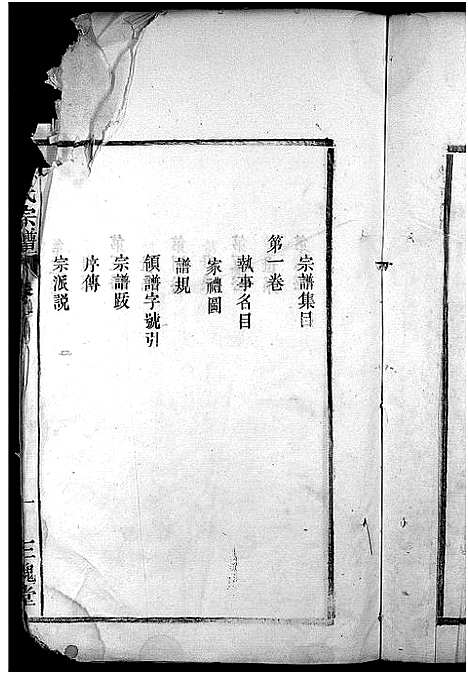 宗譜集目
第一卷
執事名目
家禮圖
譜規
領譜字號引
宗譜跋
序傳
宗派説
氏宗譜
一
三槐堂